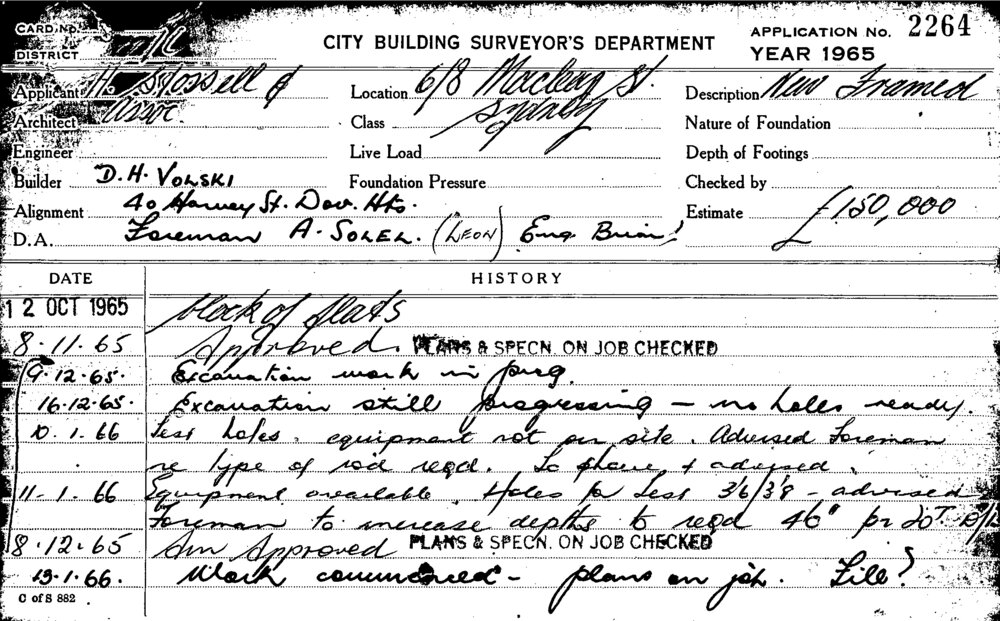 CARD No.
DISTRICT
CITY BUILDING SURVEYOR'S DEPARTMENT
APPLICATION No. 2264
YEAR 1965
Applicant H. Stossell &
Architect Assoc.
Engineer
Builder D. H. VOLSKI
Alignment 40 Harvey St. Dov. Hts.
D.A. Foreman A. SOLEL. (LEON) Eng. Brian
Location 6/8 Macleay St. Sydney
Class
Live Load
Foundation Pressure
Description New Framed
Nature of Foundation
Depth of Footings
Checked by
Estimate £150,000
DATE HISTORY
12 OCT 1965 block of flats
8.11.65 Approved. PLANS & SPECN. ON JOB CHECKED
9.12.65. Excavation work in prog.
16.12.65. Excavation still progressing – no holes ready.
10.1.66 Test holes. equipment not on site. Advised Foreman
re type of rod reqd. To phone & advised.
11-1.66 Equipment available. Holes for test 3'6/3'9 – advised
Foreman to increase depths to reqd 46" for 20T.
8.12.65 Am Approved PLANS & SPECN. ON JOB CHECKED
13.1.66. Work commenced – plans on job. File?
C of S 882